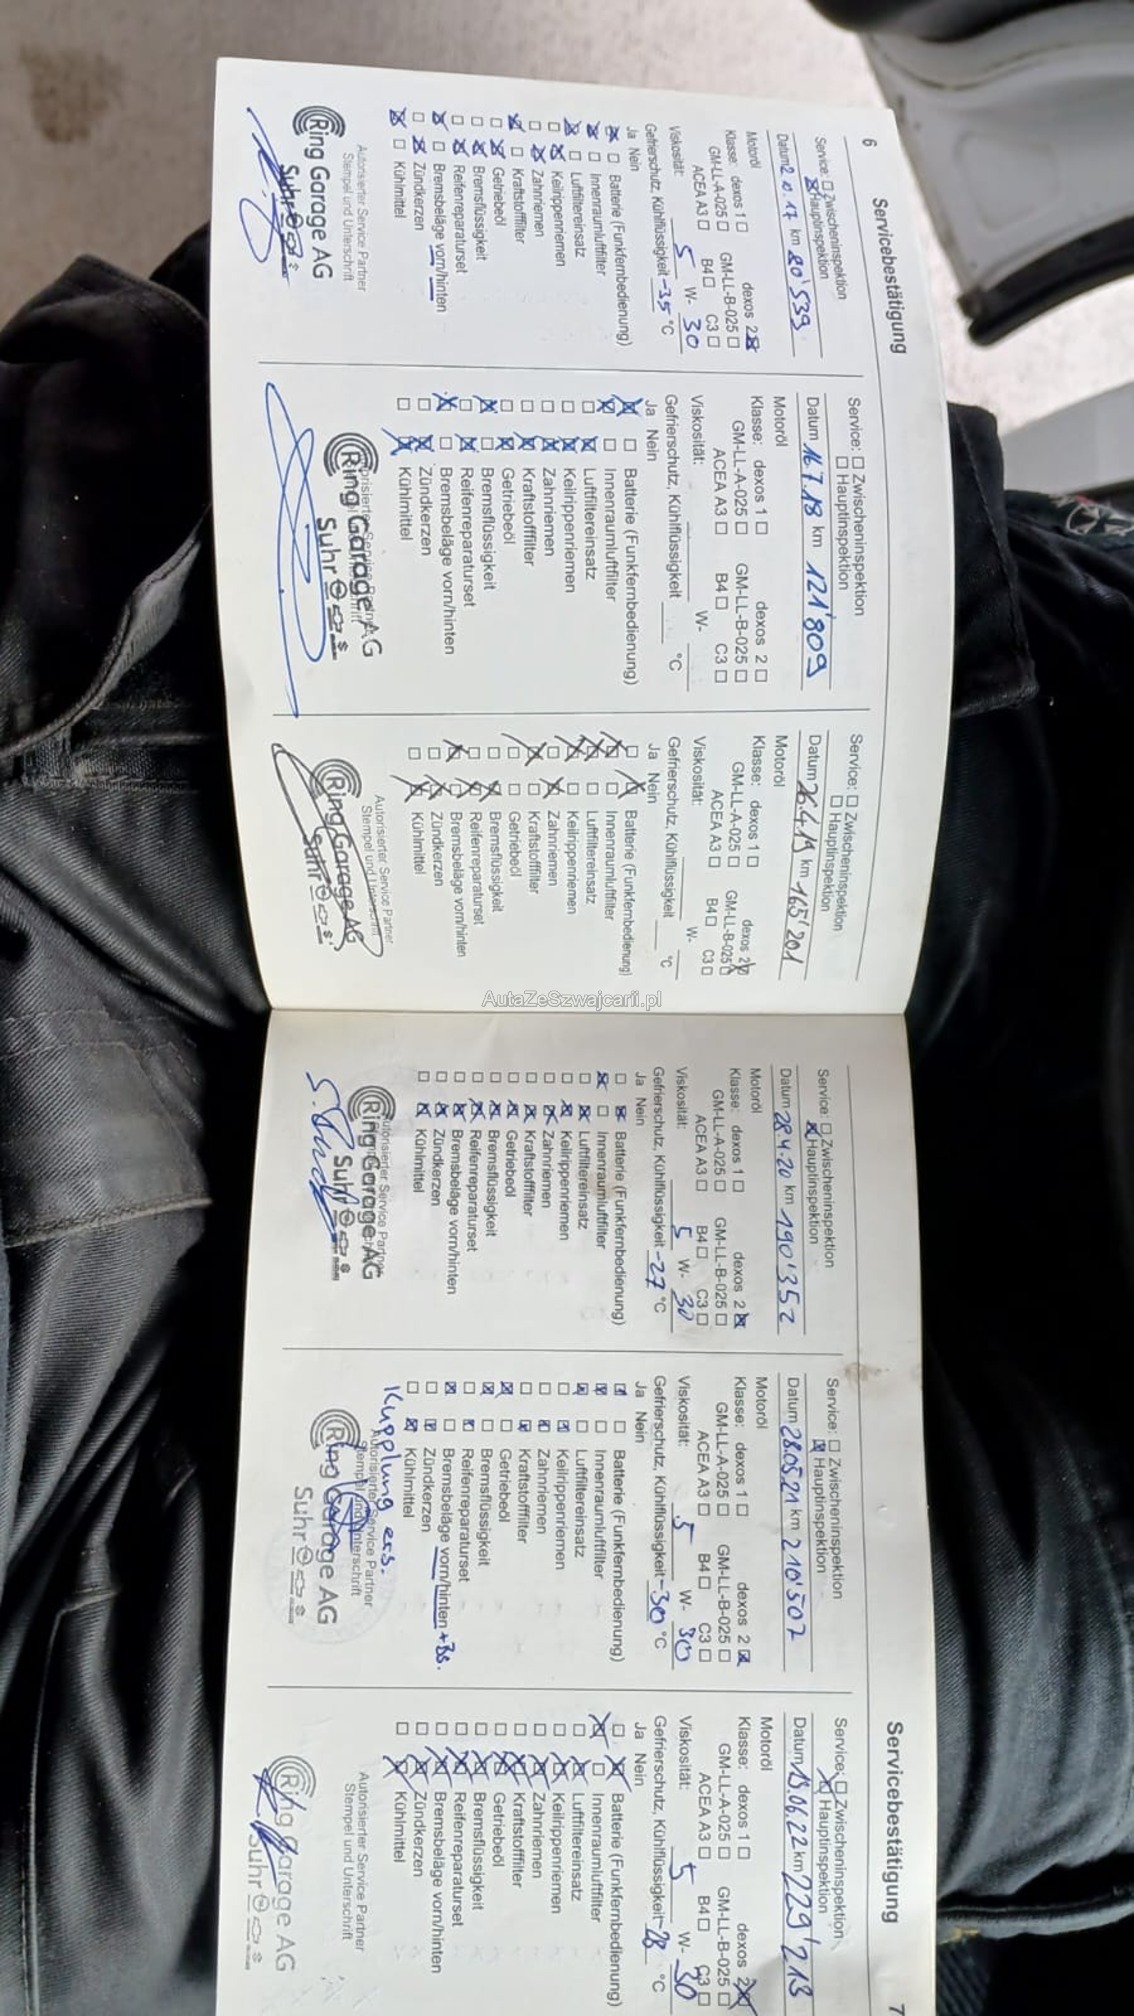 6
Servicebestätigung
Service: Zwischeninspektion
Hauptinspektion
km 80'539
Motoröl
Klasse: dexos 1 dexos 2
GM-LL-A-025 GM-LL-B-025
ACEA A3 B4 C3
Viskosität: 5 W- 30
Gefrierschutz, Kühlflüssigkeit -35 °C
Ja Nein
Batterie (Funkfernbedienung)
Innenraumluftfilter
Luftfiltereinsatz
Keilrippenriemen
Zahnriemen
Kraftstofffilter
Getriebeöl
Bremsflüssigkeit
Reifenreparaturset
Bremsbeläge vorn/hinten
Zündkerzen
Kühlmittel
Autorisierter Service Partner
Stempel und Unterschrift
Ring Garage AG
Suhr
Service: Zwischeninspektion
Hauptinspektion
Datum 16.7.18 km 121'809
Motoröl
Klasse: dexos 1 dexos 2
GM-LL-A-025 GM-LL-B-025
ACEA A3 B4 C3
Viskosität: W-
Gefrierschutz, Kühlflüssigkeit °C
Ja Nein
Batterie (Funkfernbedienung)
Innenraumluftfilter
Luftfiltereinsatz
Keilrippenriemen
Zahnriemen
Kraftstofffilter
Getriebeöl
Bremsflüssigkeit
Reifenreparaturset
Bremsbeläge vorn/hinten
Zündkerzen
Kühlmittel
Ring Garage AG
Suhr
Service: Zwischeninspektion
Hauptinspektion
Datum 26.4.19 km 165'201
Motoröl
Klasse: dexos 1 dexos 2
GM-LL-A-025 GM-LL-B-025
ACEA A3 B4 C3
Viskosität: W-
Gefrierschutz, Kühlflüssigkeit °C
Ja Nein
Batterie (Funkfernbedienung)
Innenraumluftfilter
Luftfiltereinsatz
Keilrippenriemen
Zahnriemen
Kraftstofffilter
Getriebeöl
Bremsflüssigkeit
Reifenreparaturset
Bremsbeläge vorn/hinten
Zündkerzen
Kühlmittel
Autorisierter Service Partner
Stempel und Unterschrift
Ring Garage AG
Suhr
AutaZeSzwajcarii.pl
Service: Zwischeninspektion
Hauptinspektion
Datum 28.4.20 km 190'352
Motoröl
Klasse: dexos 1 dexos 2
GM-LL-A-025 GM-LL-B-025
ACEA A3 B4 C3
Viskosität: 5 W- 30
Gefrierschutz, Kühlflüssigkeit -27 °C
Ja Nein
Batterie (Funkfernbedienung)
Innenraumluftfilter
Luftfiltereinsatz
Keilrippenriemen
Zahnriemen
Kraftstofffilter
Getriebeöl
Bremsflüssigkeit
Reifenreparaturset
Bremsbeläge vorn/hinten
Zündkerzen
Kühlmittel
Autorisierter Service Partner
Ring Garage AG
Suhr
Service: Zwischeninspektion
Hauptinspektion
Datum 28.05.21 km 210'507
Motoröl
Klasse: dexos 1 dexos 2
GM-LL-A-025 GM-LL-B-025
ACEA A3 B4 C3
Viskosität: 5 W- 30
Gefrierschutz, Kühlflüssigkeit -30 °C
Ja Nein
Batterie (Funkfernbedienung)
Innenraumluftfilter
Luftfiltereinsatz
Keilrippenriemen
Zahnriemen
Kraftstofffilter
Getriebeöl
Bremsflüssigkeit
Reifenreparaturset
Bremsbeläge vorn/hinten + BS.
Zündkerzen
Kühlmittel
Kupplung ers.
Autorisierter Service Partner
Stempel und Unterschrift
Ring Garage AG
Suhr
7
Servicebestätigung
Service: Zwischeninspektion
Hauptinspektion
Datum 13.06.22 km 229'213
Motoröl
Klasse: dexos 1 dexos 2
GM-LL-A-025 GM-LL-B-025
ACEA A3 B4 C3
Viskosität: 5 W- 30
Gefrierschutz, Kühlflüssigkeit -28 °C
Ja Nein
Batterie (Funkfernbedienung)
Innenraumluftfilter
Luftfiltereinsatz
Keilrippenriemen
Zahnriemen
Kraftstofffilter
Getriebeöl
Bremsflüssigkeit
Reifenreparaturset
Bremsbeläge vorn/hinten
Zündkerzen
Kühlmittel
Autorisierter Service Partner
Stempel und Unterschrift
Ring Garage AG
Suhr